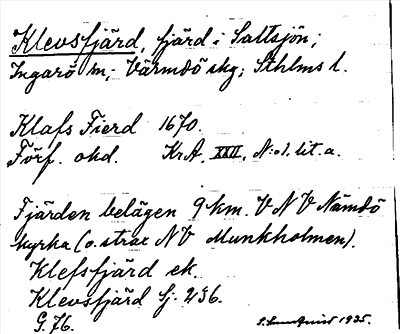 Klevsfjärd, fjärd i Saltsjön;
Ingarö sn; Värmdö skg; Sthlms l.
Klafs Fierd 1670.
Förf. okd. KrA, XXII, N:o 1. lit. a.
Fjärden belägen 9 km. V N V Nämdö
kyrka (o. strax NV Munkholmen).
Klefsfjärd ek.
Klevsfjärd Sj. 256.
G. 76.
1935.